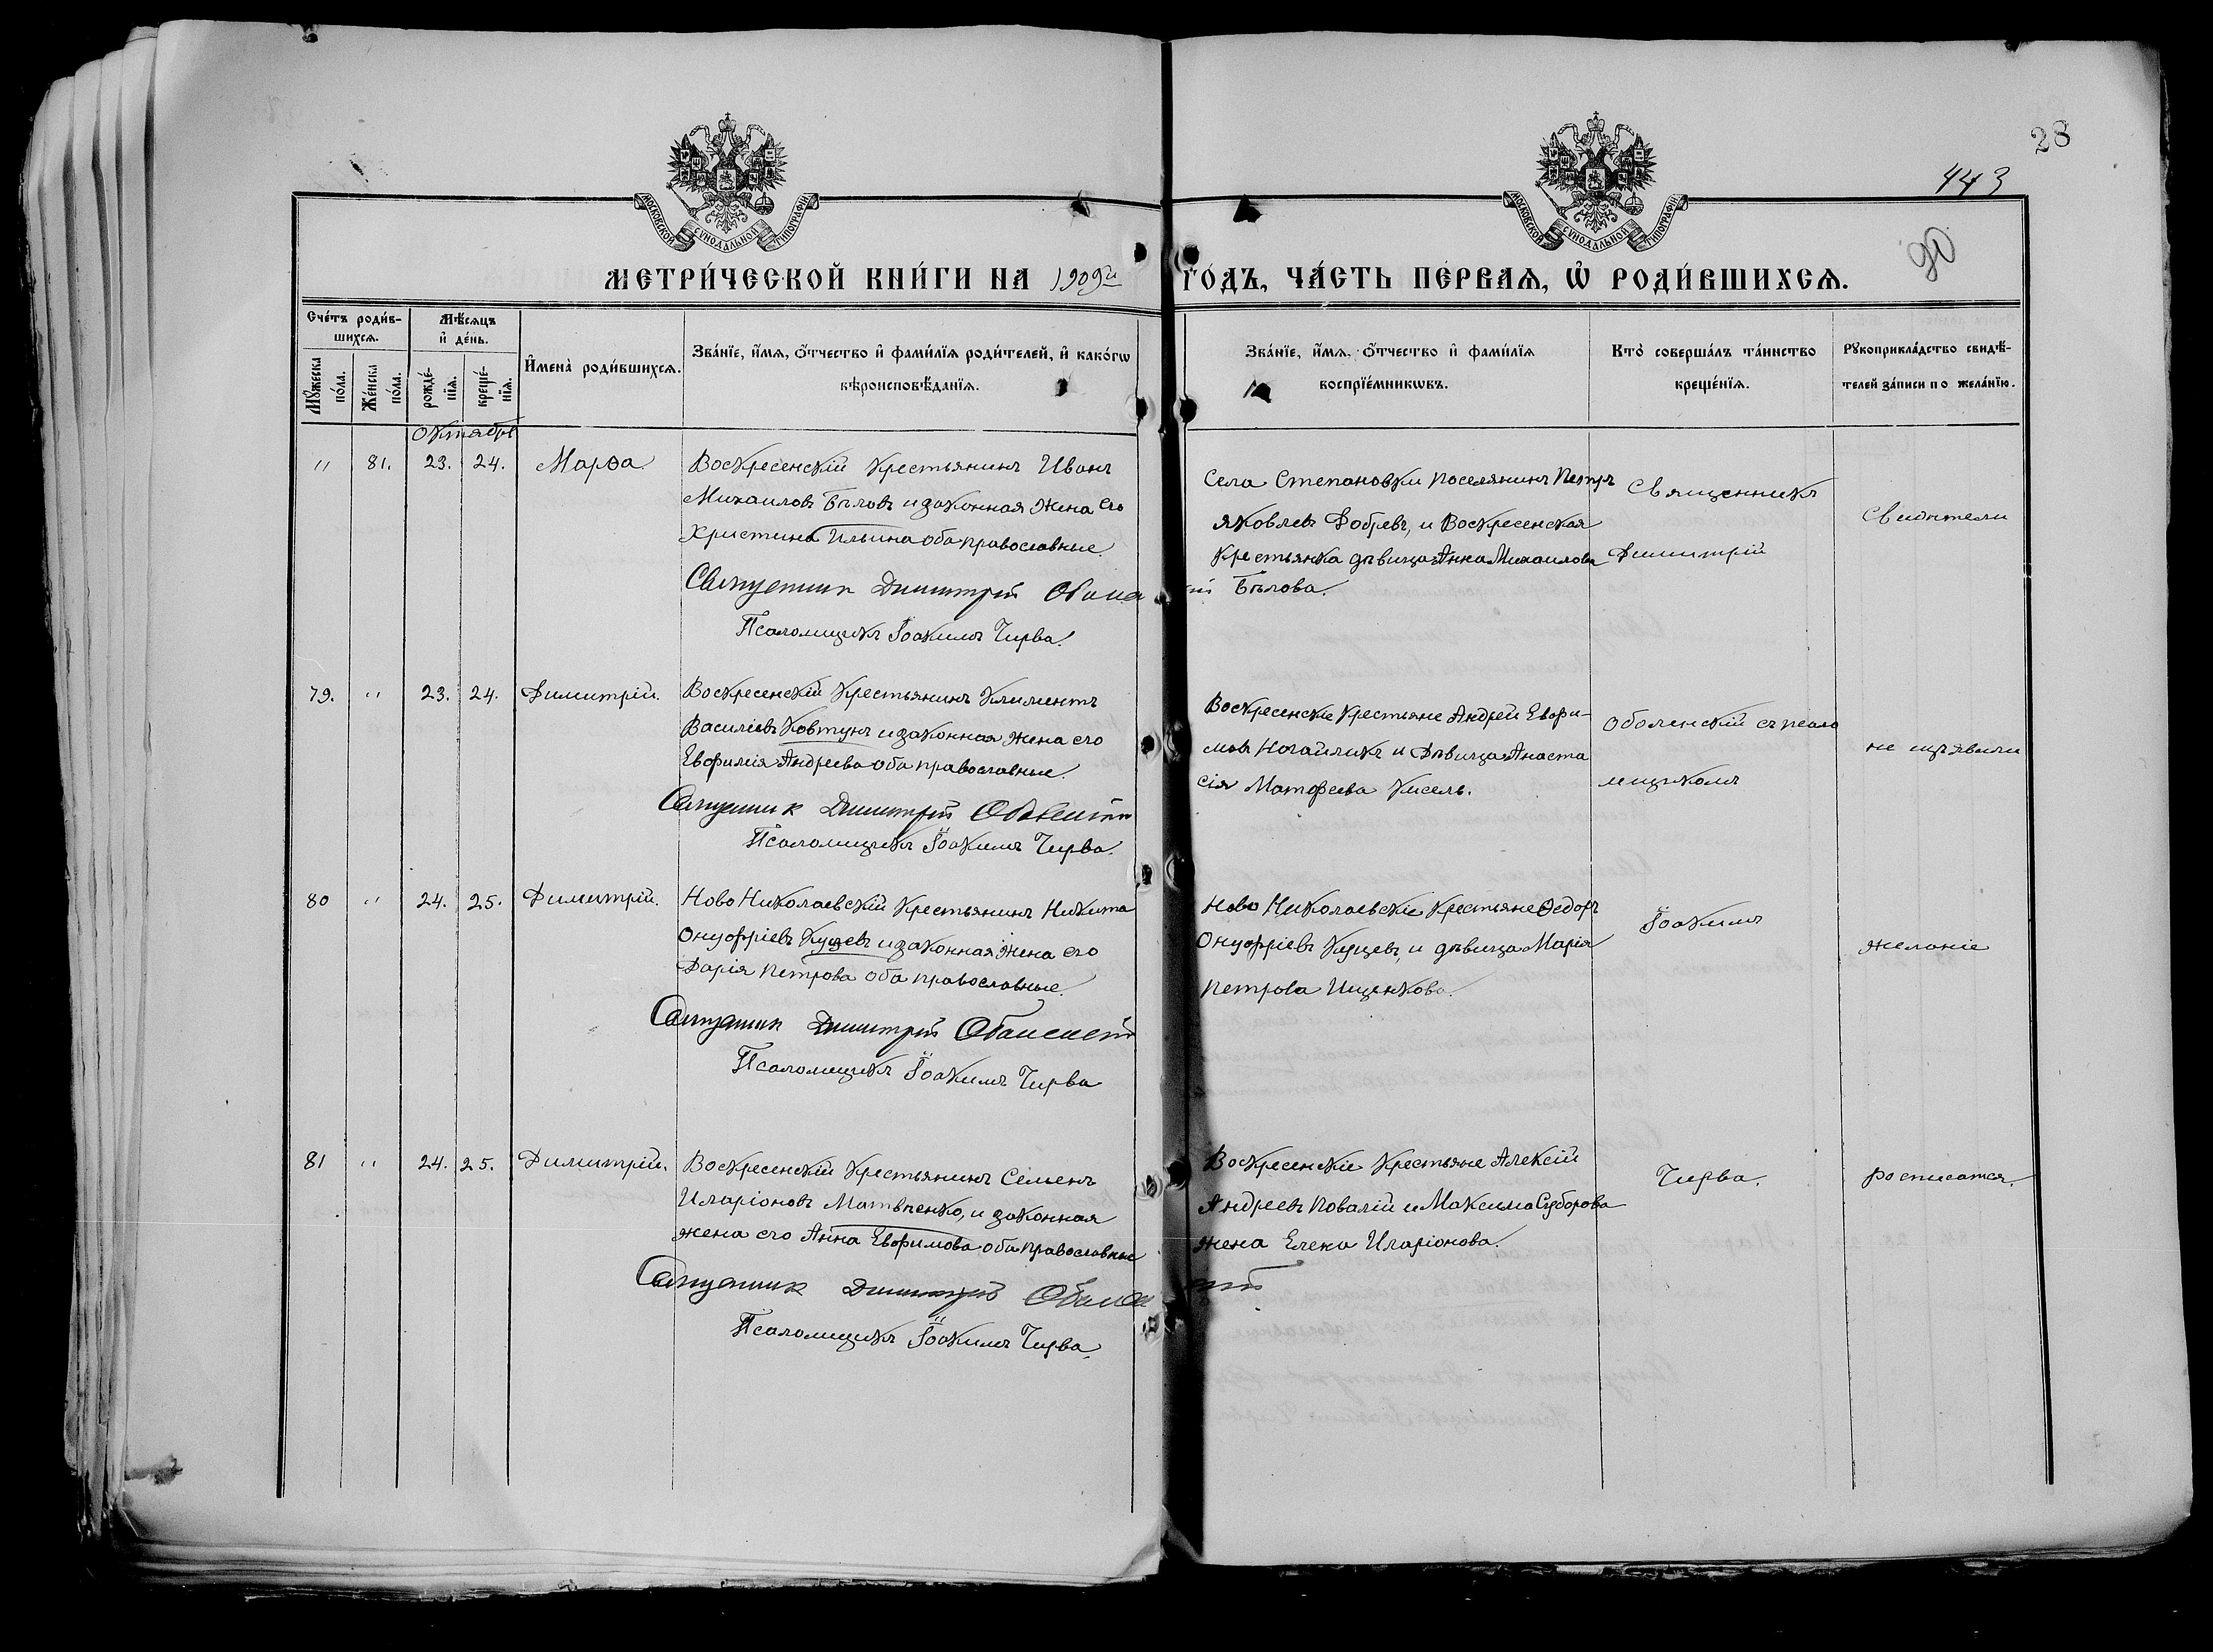 28
443
90
МОСКОВСКОЙ СѴНОДАЛЬНОЙ ТИПОГРАФІИ
МОСКОВСКОЙ СѴНОДАЛЬНОЙ ТИПОГРАФІИ
МЕТРИ́ЧЕСКОЙ КНИ́ГИ НА 1909й ГО́ДЪ, ЧА́СТЬ ПЕ́РВАѦ, Ѡ҆ РОДИ́ВШИХСѦ.
Сче́тъ роди́в-
шихсѧ.
Мꙋ́жеска по́ла.
Же́нска по́ла.
Мѣ́сѧцъ
и҆ де́нь.
рожде́-
нїѧ.
креще́-
нїѧ.
И҆мена̀ роди́вшихсѧ.
Зва́нїе, и҆́мѧ, ѻ҆́тчество и҆ фами́лїѧ роди́телей, и҆ како́гѡ
вѣроисповѣ́данїѧ.
Зва́нїе, и҆́мѧ, ѻ҆́тчество и҆ фами́лїѧ
воспрїе́мникѡвъ.
Кто̀ соверша́лъ та́инство
креще́нїѧ.
Рꙋкоприкла́дство свидѣ́-
телей за́писи по жела́нїю.
Октябрь
" 81. 23. 24. Марѳа
Воскресенскій крестьянинъ Иванъ
Михаиловъ Бѣловъ и законная жена его
Христина Ильина оба православные.
Священник Димитрий Оболенский
Псаломщикъ Іоакимъ Чирва.
Села Степановки поселянинъ Петръ
Яковлевъ Добревъ, и Воскресенская
крестьянка дѣвица Анна Михаилова
Бѣлова.
79. " 23. 24. Димитрій.
Воскресенскій крестьянинъ Климентъ
Василіевъ Ковтунъ и законная жена его
Евфимія Андреева оба православные.
Священник Димитрий Оболенский
Псаломщикъ Іоакимъ Чирва.
Воскресенскіе крестьяне Андрей Евфи-
мовъ Ногайликъ и дѣвица Анаста
сія Матфеева Кисель.
80 " 24. 25. Димитрій.
Ново Николаевскій крестьянинъ Никита
Онуфріевъ Куцевъ и законная жена его
Дарія Петрова оба православные.
Священник Димитрий Оболенский
Псаломщикъ Іоакимъ Чирва
Ново Николаевскіе крестьяне Ѳедоръ
Онуфріевъ Куцевъ, и дѣвица Марія
Петрова Ищенкова.
81 " 24. 25. Димитрій.
Воскресенскій крестьянинъ Семенъ
Иларіоновъ Матвѣенко, и законная
жена его Анна Евфимова оба православные
Священник Димитрий Оболенский
Псаломщикъ Іоакимъ Чирва.
Воскресенскіе крестьяне Алексій
Андреевъ Повалій и Максима Суборова
жена Елена Иларіонова.
Священникъ
Димитрій
Оболенскій съ псало
мщикомъ
Іоакимъ
Чирва.
Свидѣтели
не изъявили
желаніе
росписатся.